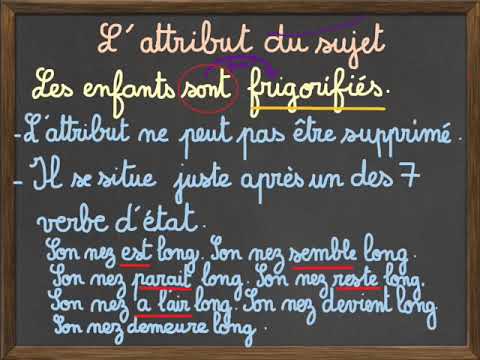 L'attribut du sujet
Les enfants sont frigorifiés.
-L'attribut ne peut pas être supprimé.
- Il se situe juste après un des 7
verbe d'état.
Son nez est long. Son nez semble long.
Son nez parait long. Son nez reste long.
Son nez a l'air long. Son nez devient long.
Son nez demeure long.